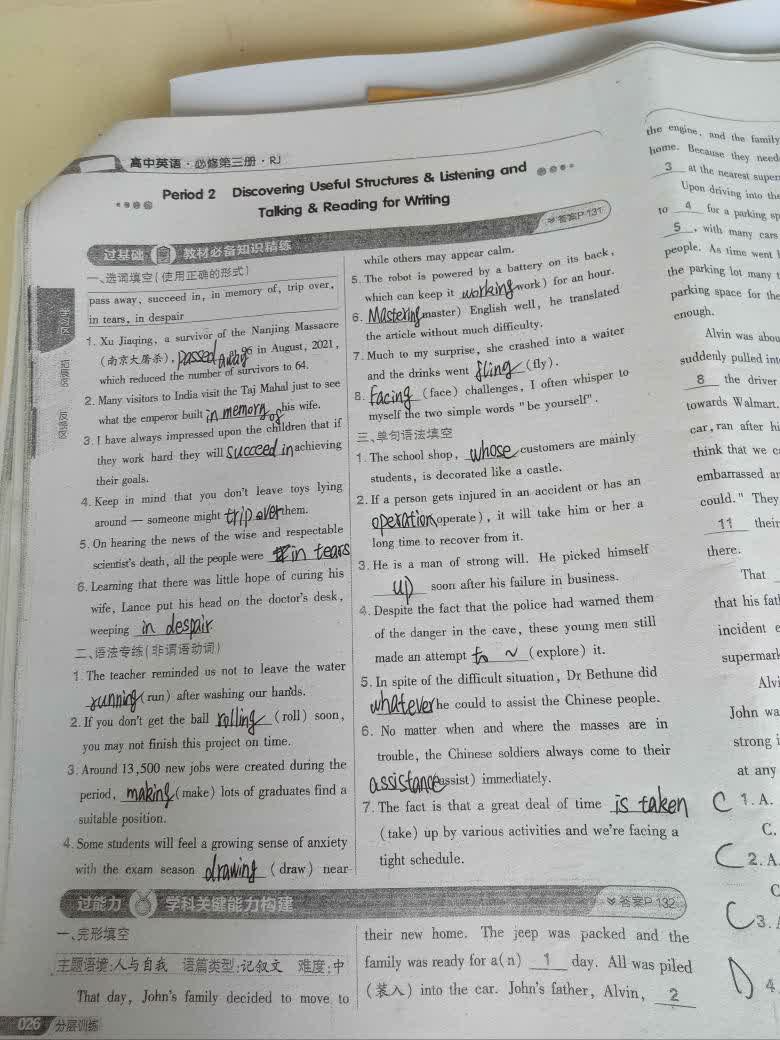 高中英语·必修第三册·RJ
Period 2 Discovering Useful Structures & Listening and
Talking & Reading for Writing
答案P.131
过基础 教材必备知识精练
一、选词填空(使用正确的形式)
pass away, succeed in, in memory of, trip over,
in tears, in despair
1. Xu Jiaqing, a survivor of the Nanjing Massacre
(南京大屠杀), passed away in August, 2021,
which reduced the number of survivors to 64.
2. Many visitors to India visit the Taj Mahal just to see
what the emperor built in memory of his wife.
3. I have always impressed upon the children that if
they work hard they will succeed in achieving
their goals.
4. Keep in mind that you don't leave toys lying
around — someone might trip over them.
5. On hearing the news of the wise and respectable
scientist's death, all the people were in tears
6. Learning that there was little hope of curing his
wife, Lance put his head on the doctor's desk,
weeping in despair.
二、语法专练(非谓语动词)
1. The teacher reminded us not to leave the water
running (run) after washing our hands.
2. If you don't get the ball rolling (roll) soon,
you may not finish this project on time.
3. Around 13,500 new jobs were created during the
period, making (make) lots of graduates find a
suitable position.
4. Some students will feel a growing sense of anxiety
with the exam season drawing (draw) near
while others may appear calm.
5. The robot is powered by a battery on its back,
which can keep it working (work) for an hour.
6. Mastering (master) English well, he translated
the article without much difficulty.
7. Much to my surprise, she crashed into a waiter
and the drinks went fling (fly).
8. Facing (face) challenges, I often whisper to
myself the two simple words "be yourself".
三、单句语法填空
1. The school shop, whose customers are mainly
students, is decorated like a castle.
2. If a person gets injured in an accident or has an
operation (operate), it will take him or her a
long time to recover from it.
3. He is a man of strong will. He picked himself
up soon after his failure in business.
4. Despite the fact that the police had warned them
of the danger in the cave, these young men still
made an attempt to ~ (explore) it.
5. In spite of the difficult situation, Dr Bethune did
whatever he could to assist the Chinese people.
6. No matter when and where the masses are in
trouble, the Chinese soldiers always come to their
assistance (assist) immediately.
7. The fact is that a great deal of time is taken
(take) up by various activities and we're facing a
tight schedule.
过能力 学科关键能力构建
答案P.132
一、完形填空
主题语境:人与自我 语篇类型:记叙文 难度:中
That day, John's family decided to move to
their new home. The jeep was packed and the
family was ready for a(n) 1 day. All was piled
(装入) into the car. John's father, Alvin, 2
the engine, and the family
home. Because they need
3 at the nearest super
Upon driving into the
to 4 for a parking sp
5, with many cars
people. As time went
the parking lot many t
parking space for the
enough.
Alvin was abou
suddenly pulled int
8 the driver
towards Walmart.
car, ran after hi
think that we c
embarrassed an
could." They
11 their
there.
That
that his fat
incident e
supermark
Alvi
John wa
strong i
at any
C 1. A.
C.
C 2. A
C
C 3.
D 4
026 分层训练